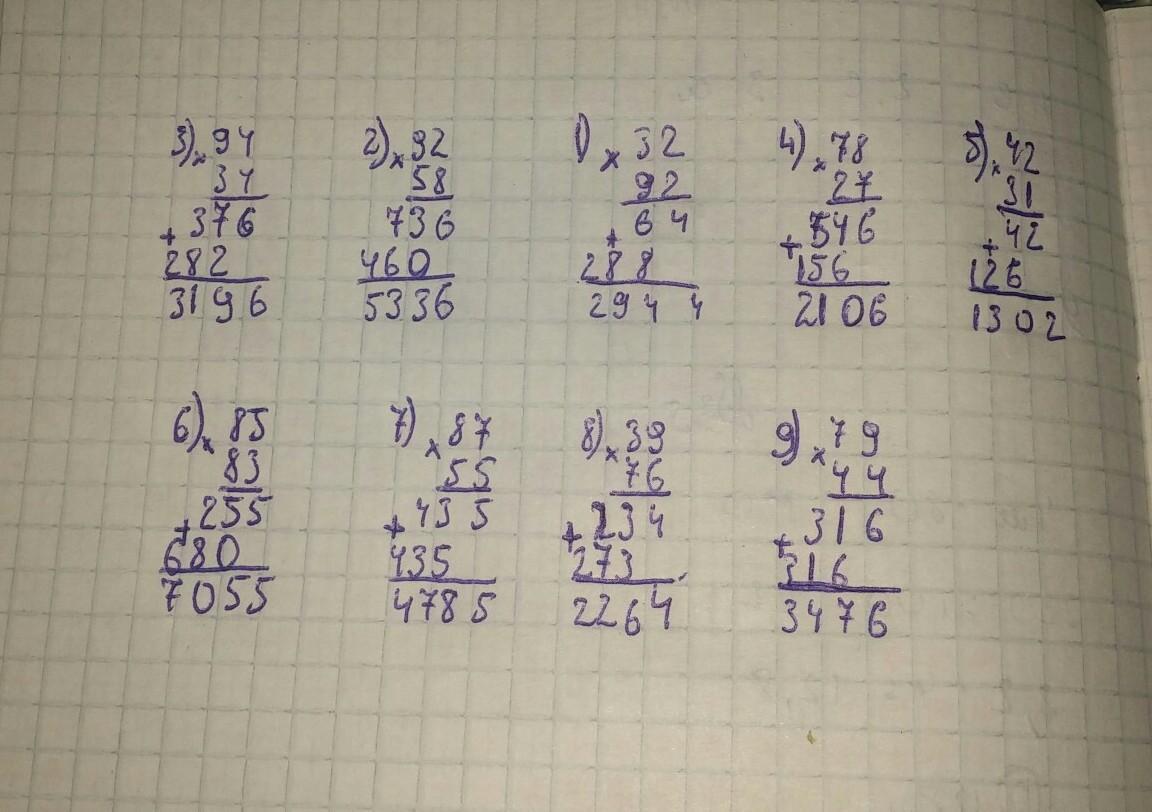 3) × 94
34
+ 376
282
3196
2) × 92
58
736
460
5336
1) × 32
92
+ 64
288
2944
4) × 78
27
+ 546
156
2106
5) × 42
31
+ 42
126
1302
6) × 85
83
+ 255
680
7055
7) × 87
55
+ 435
435
4785
8) × 39
76
+ 234
273
2264
9) × 79
44
+ 316
316
3476